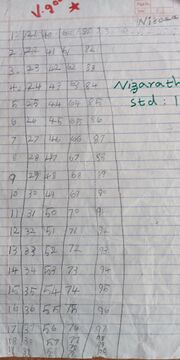 V.good
Nizara
Nizarath
std : 1
2 22 41 61 82
3 23 42 62 83
4 24 43 63 84
5 25 44 64 85
6 26 45 65 86
7 27 46 66 87
8 28 47 67 88
9 29 48 68 89
10 30 49 69 90
11 31 50 70 91
12 32 51 71 92
13 33 52 72 93
14 34 53 73 94
15 35 54 74 95
16 36 55 75 96
17 37 56 76 97